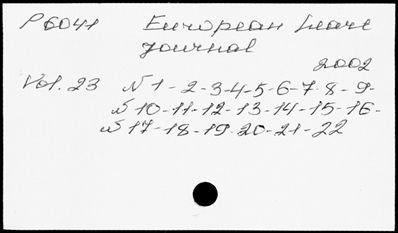 P6041 European heart
journal
2002
Vol. 23 N 1-2-3-4-5-6-7-8-9-
N 10-11-12-13-14-15-16-
N 17-18-19-20-21-22